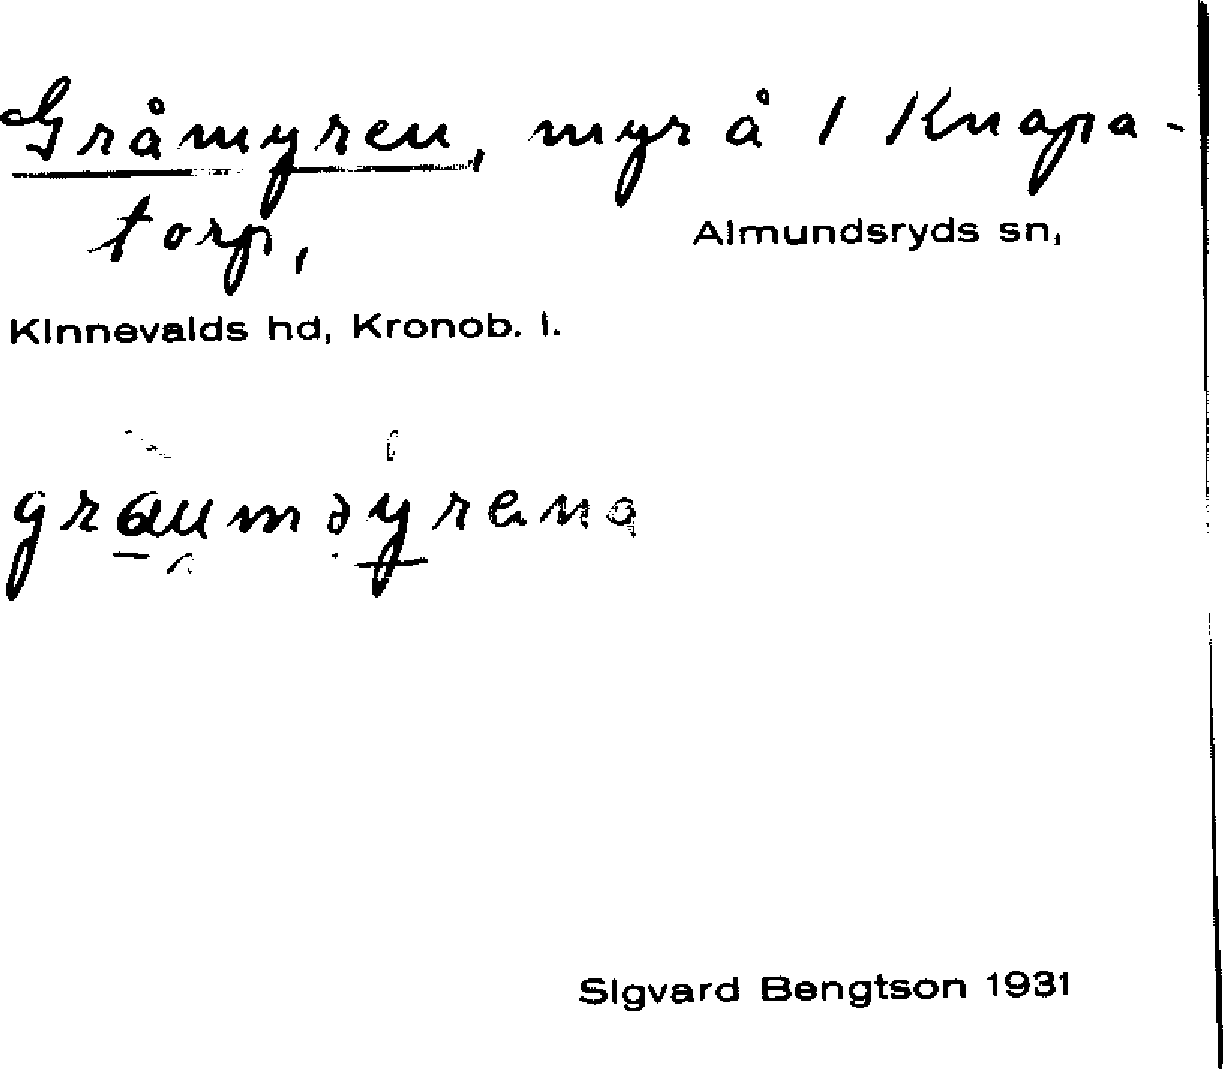 Gråmyren, myr å 1 Knapa-
torp,
Almundsryds sn,
Kinnevalds hd, Kronob. l.
grauməyrena
Sigvard Bengtson 1931